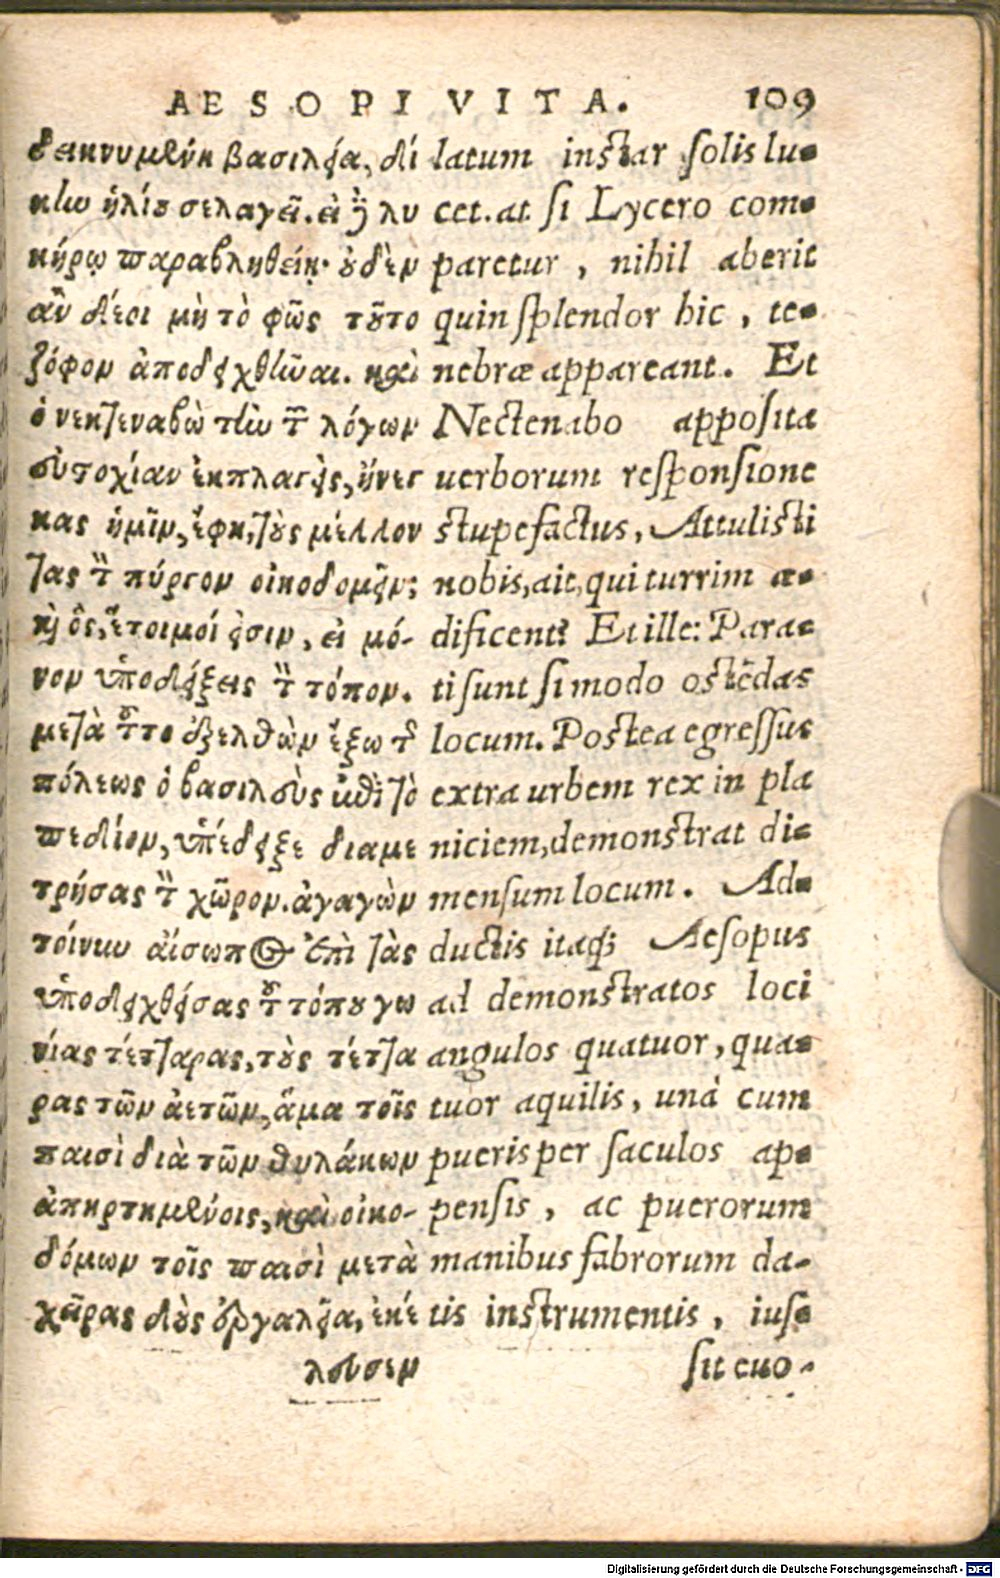 AESOPI VITA. 109
δεικνυμένη βασιλεία, δί
κην ἡλίου σελαγεῖ. εἰ δὲ λυ
κήρῳ παραβληθείη· οὐδὲν
ἂν δέοι μὴ τὸ φῶς τοῦτο
ζόφον ἀποδειχθῆναι. καὶ
ὁ νεκτεναβὼ τὴν τῶν λόγων
εὐστοχίαν ἐκπλαγεὶς, ἤνεγ
κας ἡμῖν, ἔφη, τοὺς μέλλον
τας τὸν πύργον οἰκοδομεῖν;
καὶ ὃς, ἕτοιμοί εἰσιν, εἰ μό-
νον ὑποδείξεις τὸν τόπον.
μετὰ τοῦτο ἐξελθὼν ἔξω τῆς
πόλεως ὁ βασιλεὺς ἐπὶ τὸ
πεδίον, ὑπέδειξε διαμε
τρήσας τὸν χῶρον. ἀγαγὼν
τοίνυν αἴσωπος ἐπὶ τὰς
ὑποδειχθείσας τοῦ τόπου γω
νίας τέτταρας, τοὺς τέττα
ρας τῶν ἀετῶν, ἅμα τοῖς
παισὶ διὰ τῶν θυλάκων
ἀπηρτημένοις, καὶ οἰκο-
δόμων τοῖς παισὶ μετὰ
χεῖρας δοὺς ἐργαλεῖα, ἐκέ
λευσεν
latum instar solis lu-
cet. at si Lycero com-
paretur, nihil aberit
quin splendor hic, te-
nebræ appareant. Et
Nectenabo apposita
uerborum responsione
stupefactus, Attulisti
nobis, ait, qui turrim æ-
dificent? Et ille: Para-
ti sunt si modo ostēdas
locum. Postea egressus
extra urbem rex in pla
niciem, demonstrat di-
mensum locum. Ad-
ductis itaq; Aesopus
ad demonstratos loci
angulos quatuor, qua-
tuor aquilis, unà cum
pueris per saculos ap-
pensis, ac puerorum
manibus fabrorum da-
tis instrumentis, ius-
sit euo-
Digitalisierung gefördert durch die Deutsche Forschungsgemeinschaft - DFG